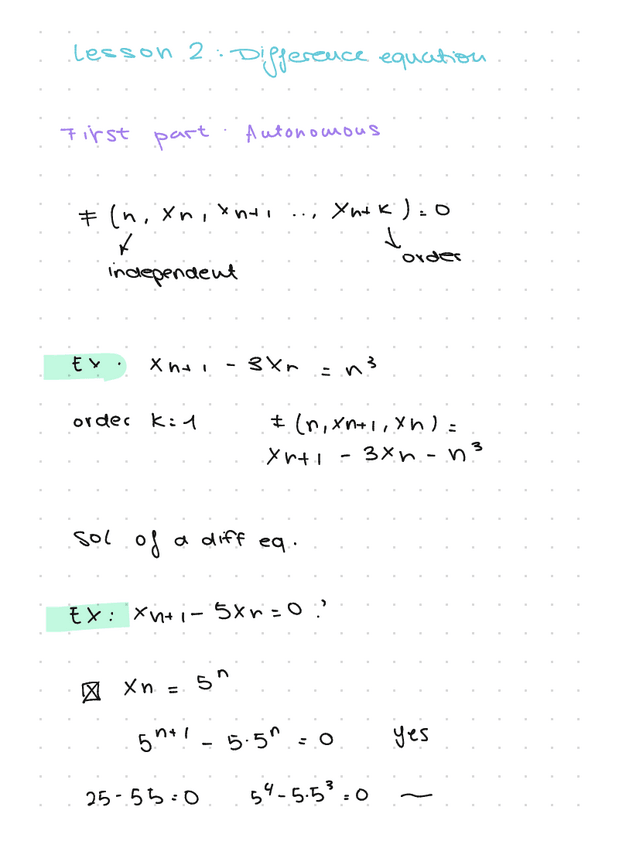 Lesson 2: Difference equation
First part: Autonomous
F (n, xn, xn+1 ..., xn+k) = 0
independent
order
Ex: xn+1 - 3xn = n³
order k=1 F (n, xn+1, xn) =
xn+1 - 3xn - n³
Sol of a diff eq.
Ex: xn+1 - 5xn = 0 ?
☒ xn = 5ⁿ
5ⁿ⁺¹ - 5·5ⁿ = 0 yes
25 - 5 5 = 0 5⁴ - 5·5³ = 0 ~